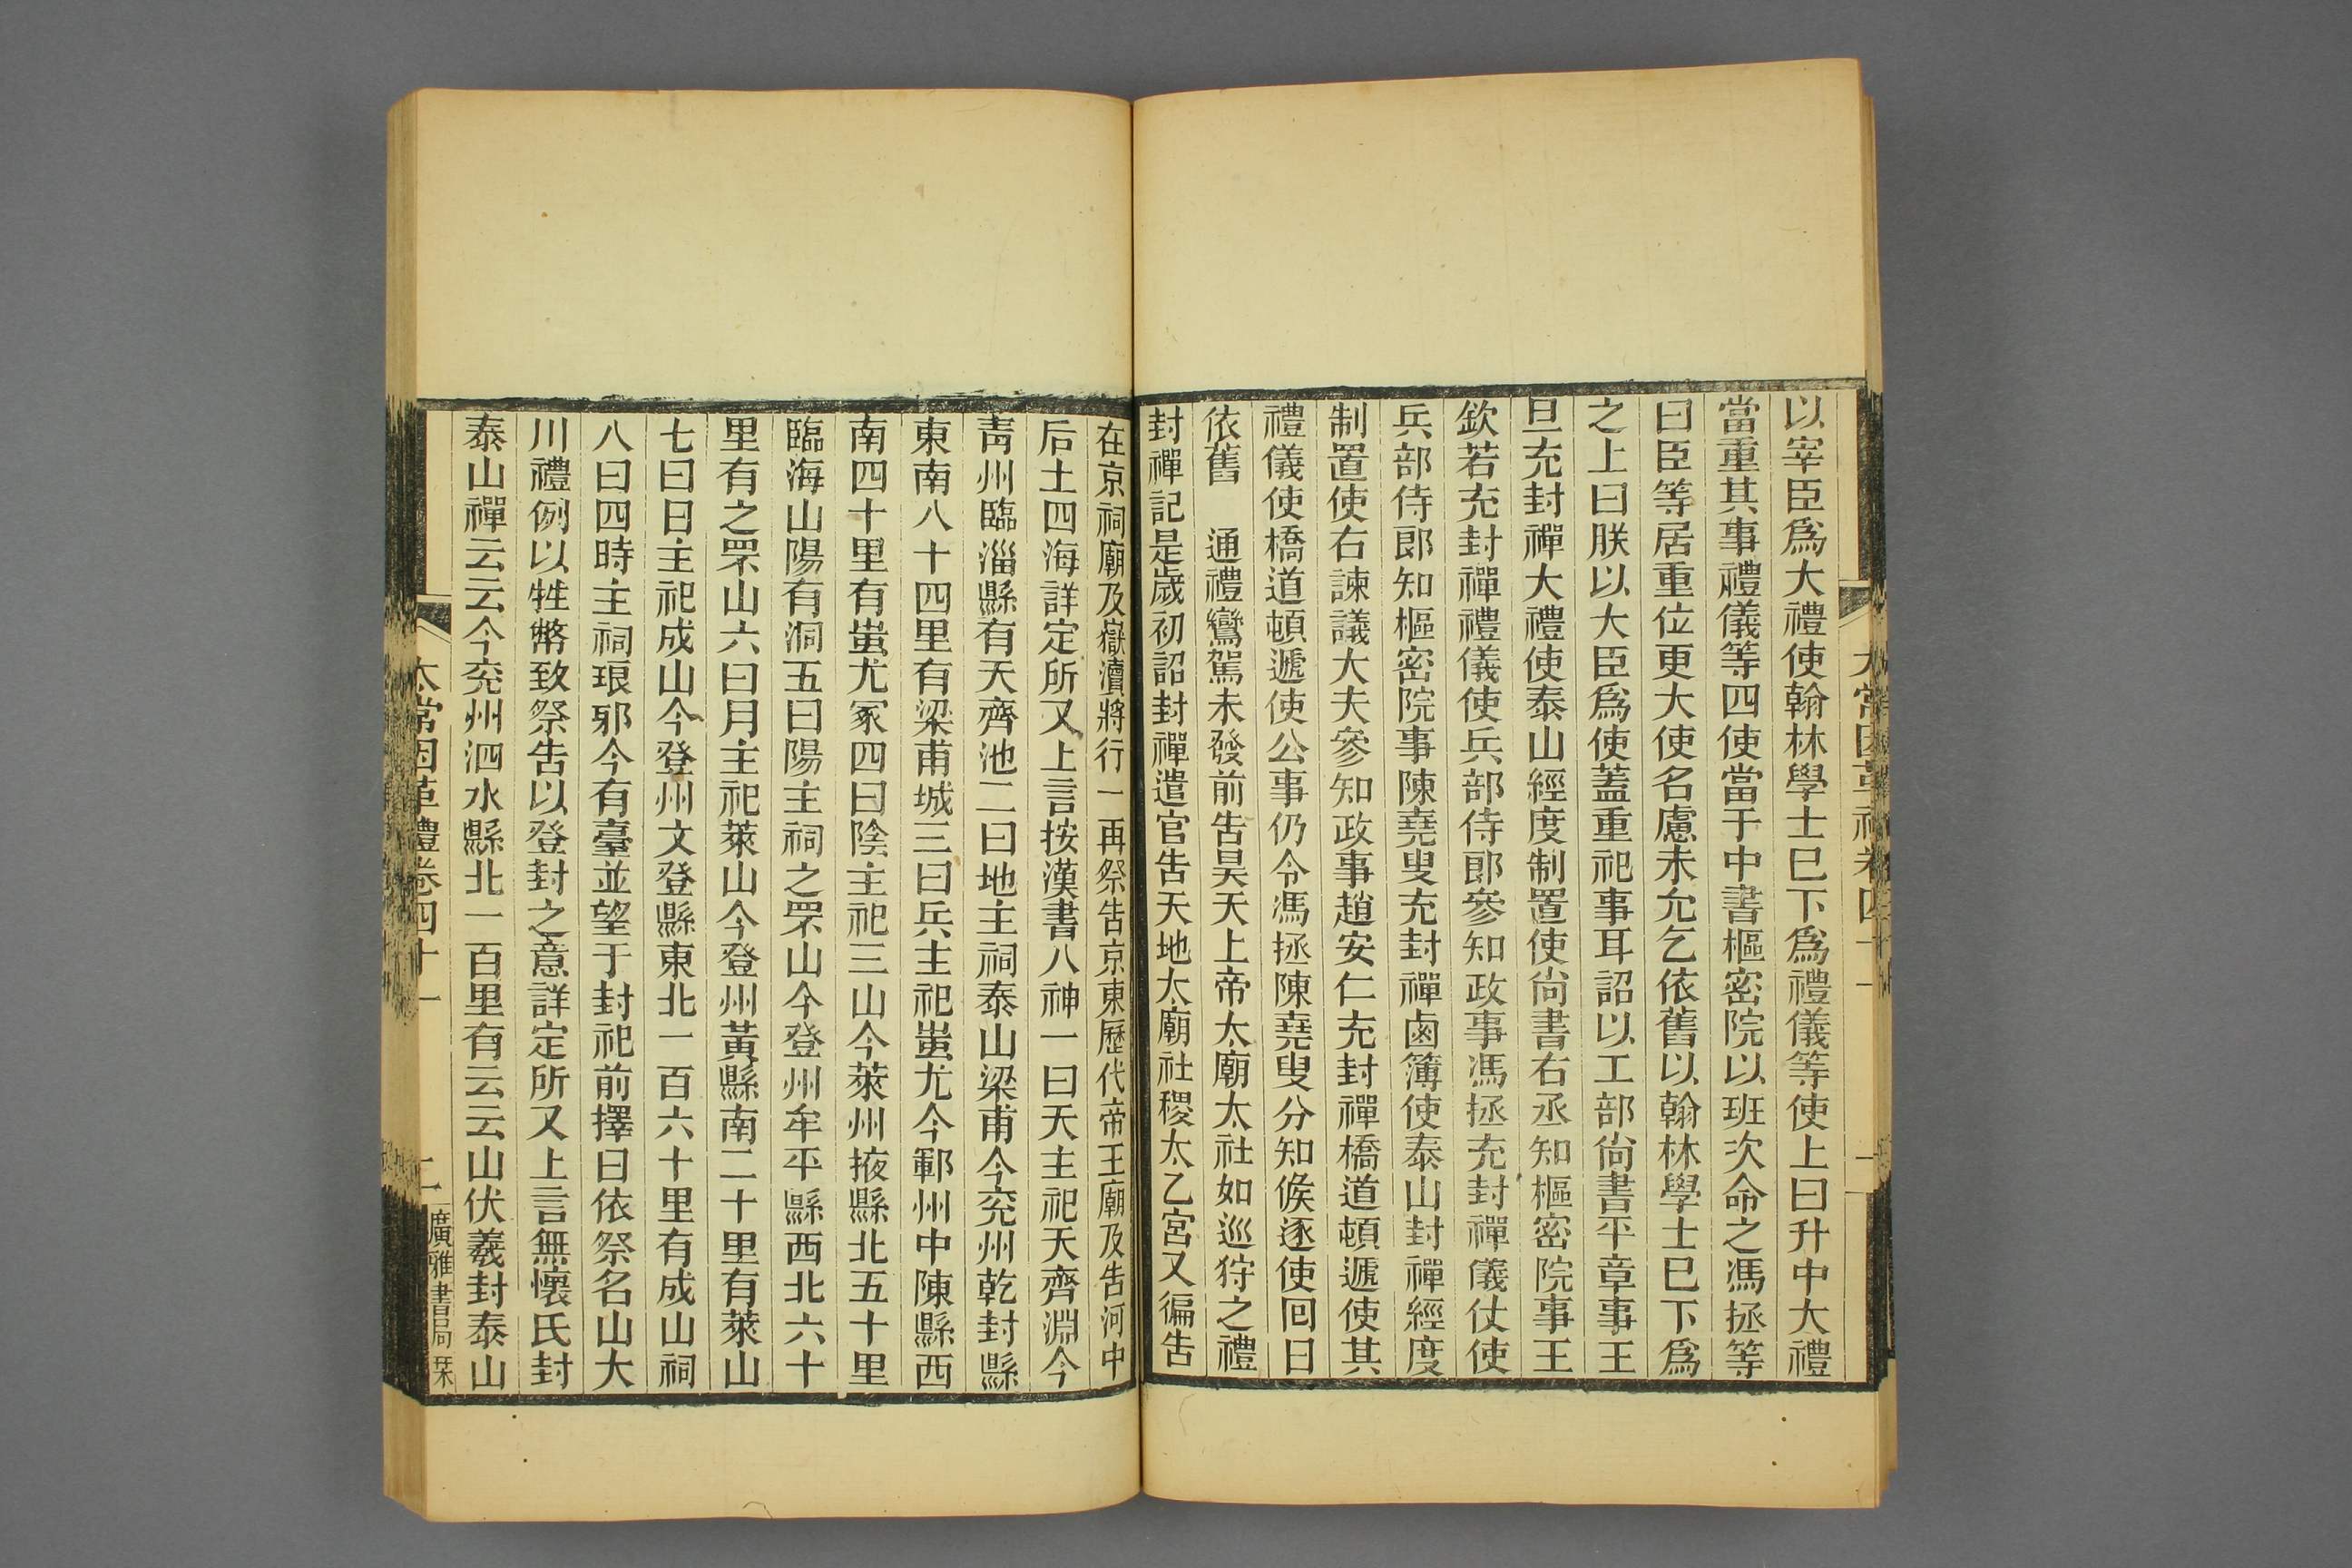 太常因革禮卷四十一
以宰臣爲大禮使翰林學士巳下爲禮儀等使上曰升中大禮
當重其事禮儀等四使當于中書樞密院以班次命之馮拯等
曰臣等居重位更大使名慮未允乞依舊以翰林學士巳下爲
之上曰朕以大臣爲使蓋重祀事耳詔以工部尚書平章事王
旦充封禪大禮使泰山經度制置使尚書右丞知樞密院事王
欽若充封禪禮儀使兵部侍郎參知政事馮拯充封禪儀仗使
兵部侍郎知樞密院事陳堯叟充封禪鹵簿使泰山封禪經度
制置使右諫議大夫參知政事趙安仁充封禪橋道頓遞使其
禮儀使橋道頓遞使公事仍令馮拯陳堯叟分知候逐使回日
依舊　通禮鸞駕未發前告昊天上帝太廟太社如巡狩之禮
封禪記是歲初詔封禪遣官告天地太廟社稷太乙宮又徧告
在京祠廟及嶽瀆將行一再祭告京東歷代帝王廟及告河中
后土四海詳定所又上言按漢書八神一曰天主祀天齊淵今
靑州臨淄縣有天齊池二曰地主祠泰山梁甫今兖州乾封縣
東南八十四里有梁甫城三曰兵主祀蚩尤今鄆州中陳縣西
南四十里有蚩尤冢四曰陰主祀三山今萊州掖縣北五十里
臨海山陽有洞五曰陽主祠之罘山今登州牟平縣西北六十
里有之罘山六曰月主祀萊山今登州黃縣南二十里有萊山
七曰日主祀成山今登州文登縣東北一百六十里有成山祠
八曰四時主祠琅邪今有臺並望于封祀前擇日依祭名山大
川禮例以牲幣致祭告以登封之意詳定所又上言無懷氏封
泰山禪云云今兖州泗水縣北一百里有云云山伏羲封泰山
太常因革禮卷四十一　二　廣雅書局栞